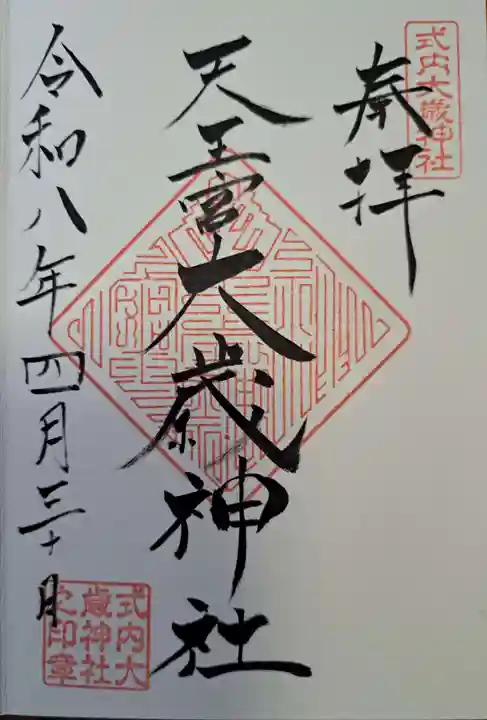 式内大歳神社
奉拝
天王宮大歳神社
令和八年四月三十日
式内大
歳神社
之印章